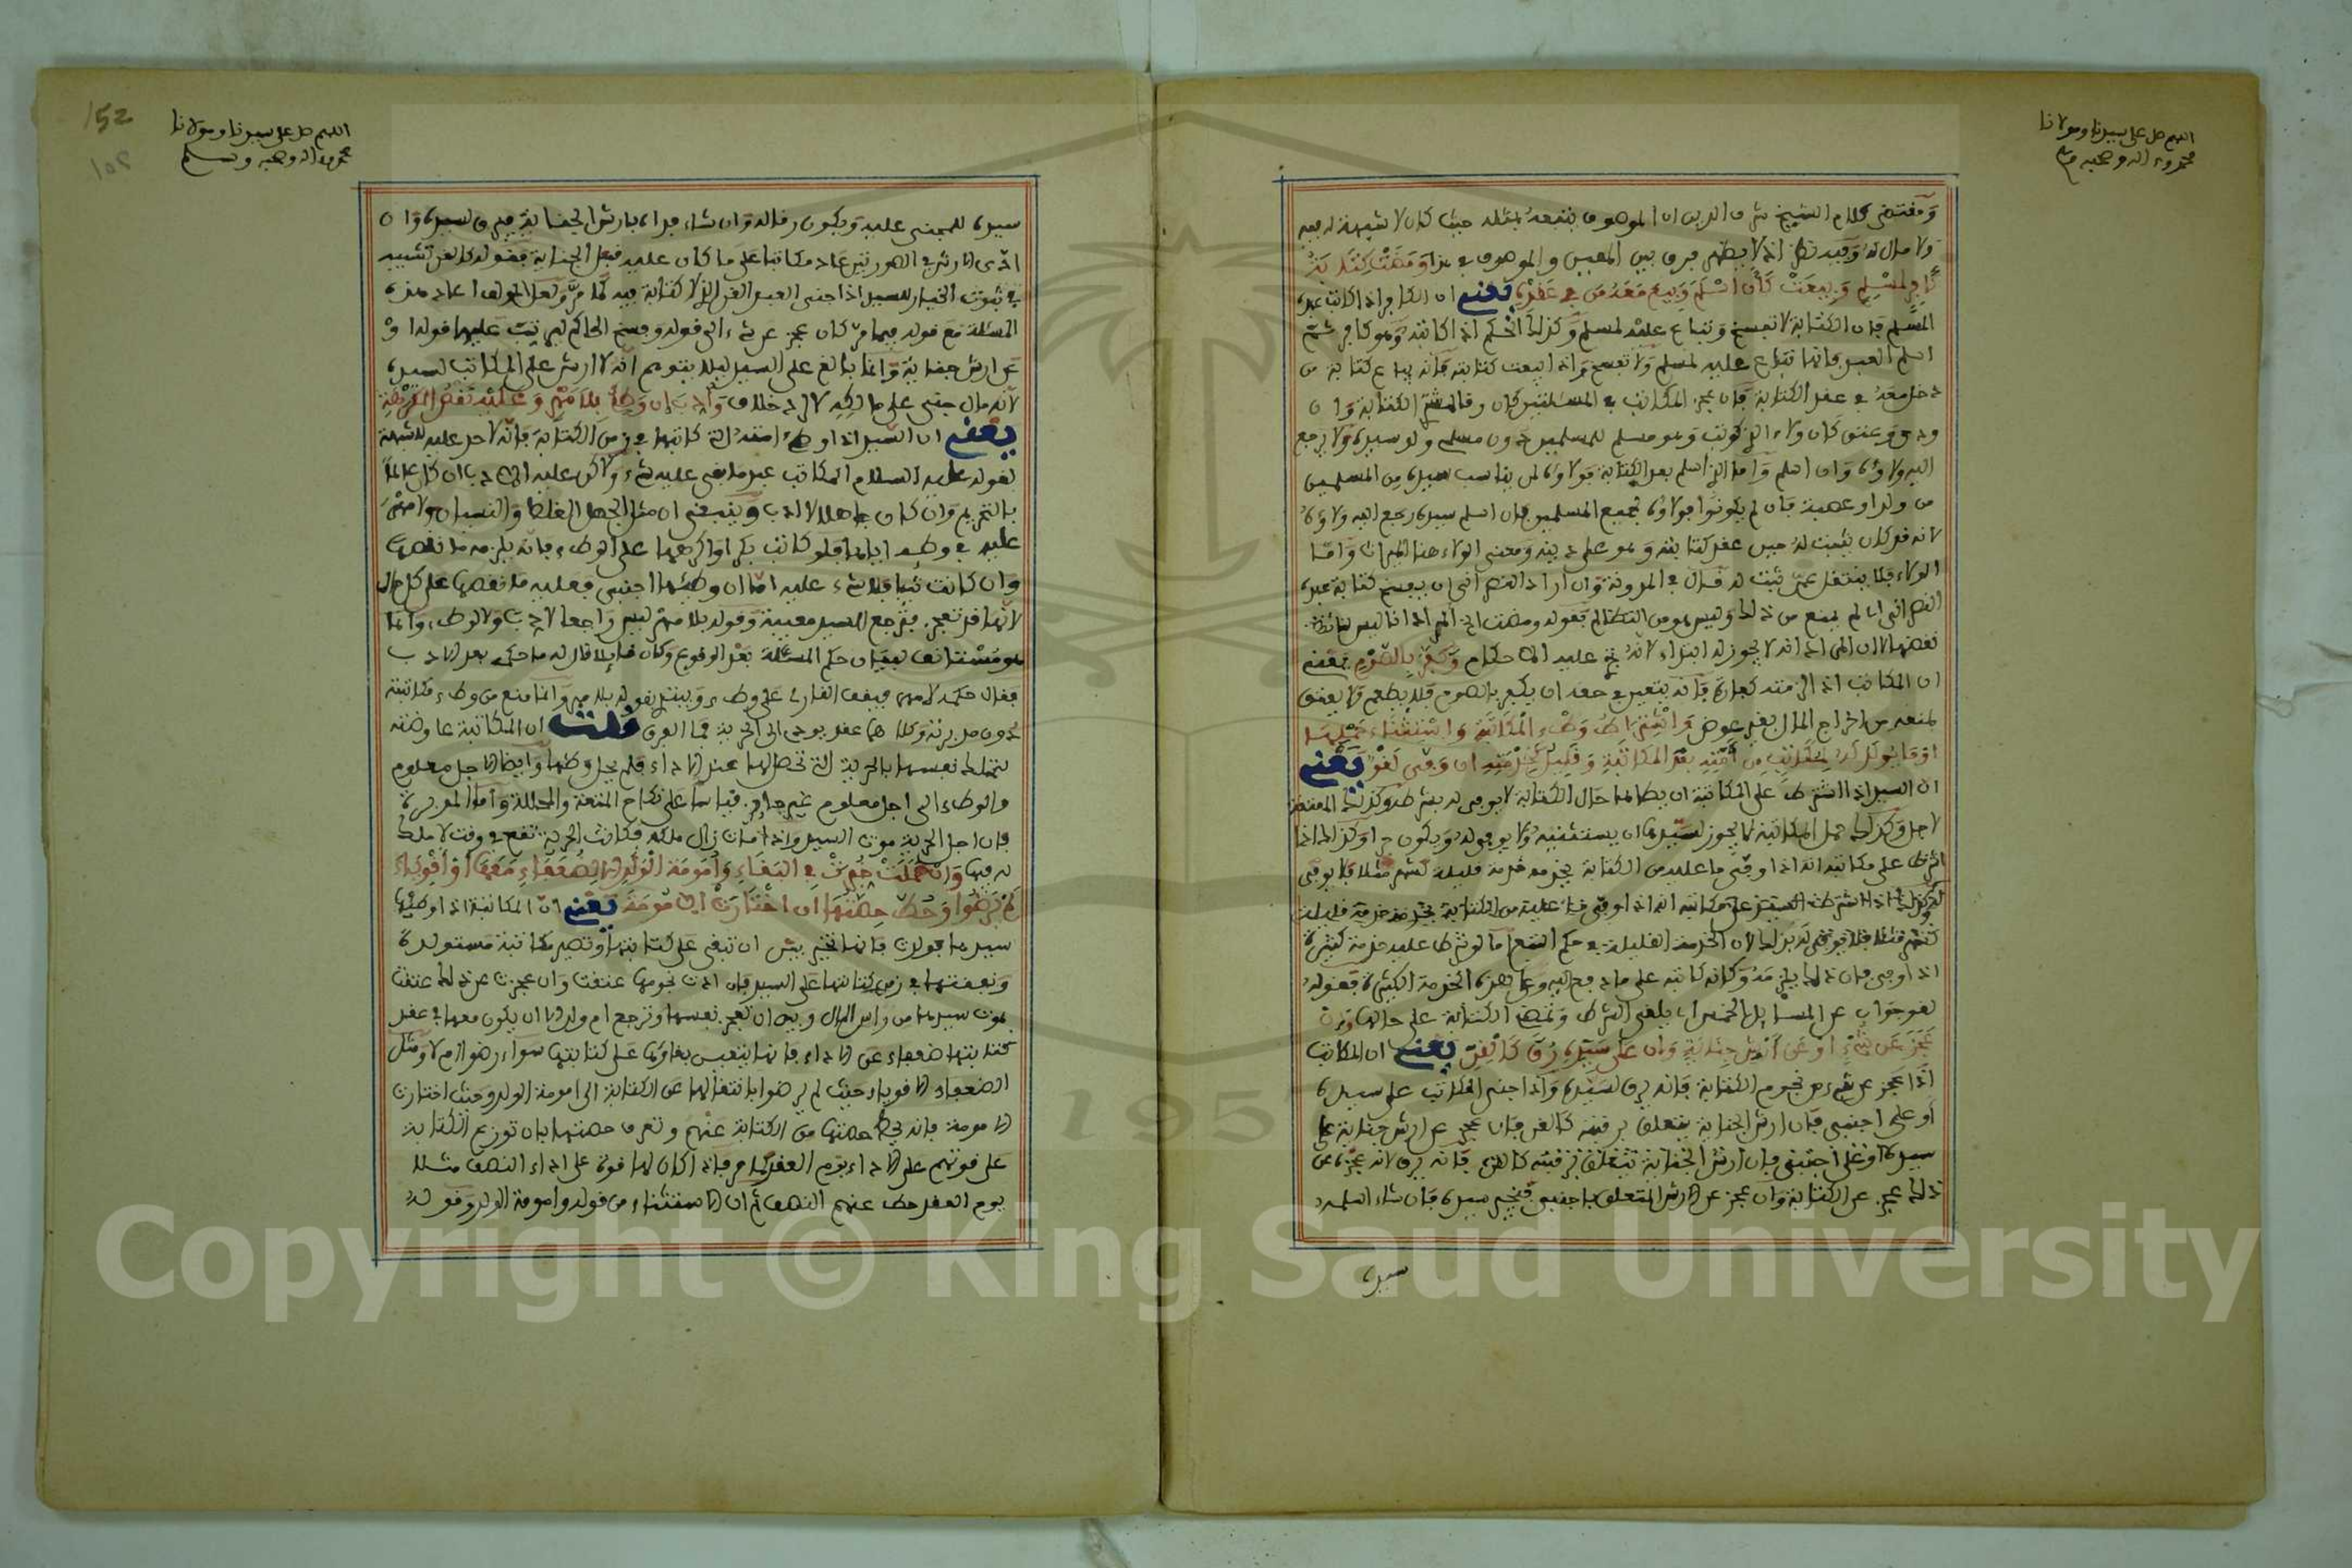 اللهم صل على سيدنا ومولانا
محمد وءاله وصحبه
ومقتضى كلام الشيخ شرف الدين ان الموصوف ينفعه بمثله حيث كان لا شبهة له فيه
ولا مال له وفيه نظر اذ لا يظهر فرق بين المعين والموصوف في هذا ومضت كتابة
كافر لمسلم وبيعت كأن اسلم وبيع معه من في عقده يعنى ان الكافر اذا كاتب عبده
المسلم فان الكتابة لا تفسخ وتباع عليه لمسلم وكذلك الحكم اذا كاتبه وهو كافر ثم
اسلم العبد فانها تباع عليه لمسلم ولا تفسخ واذا بيعت كتابته فانه يباع كتابة من
دخل معه في عقد الكتابة فان عجز المكاتب في المسئلتين كان رقا لمشتري الكتابة وان
ودى وعتق كان ولاء الذي كوتب وهو مسلم للمسلمين دون مسلم ولو سيده ولا يرجع
اليه ولاؤه وان اسلم واما الذي اسلم بعد الكتابة فولاؤه لمن يناسب سيده من المسلمين
من ولد او عصبة فان لم يكونوا فولاؤه لجميع المسلمين فان اسلم سيده رجع اليه ولاؤه
لانه قد كان يثبت له حين عقد كتابته وهو على دينه ومعنى الولاء هنا الميراث واما
الولاء فلا ينتقل عمن ثبت له قال في المدونة وان اراد النصراني ان يفسخ كتابة عبده
النصراني لم يمنع من ذلك وليس هو من التظالم فقوله ومضت
ان المكاتب اذا لزمته كفارة فانه يتعين في حقه ان يكفر بالصوم فلا يطعم ولا يعتق
لمنعه من اخراج المال بغير عوض واشتراط وطء المكاتبة واستثناء حملها
او ما يولد له لمكاتب من امته بعد المكاتبة وقليل كخدمته ان وفى لغو يعنى
ان السيد اذا اشترط على المكاتبة ان يطأها حال الكتابة لا يوفى له بشرطه وكذلك المعتقة
لاجل وكذلك حمل المكاتبة لا يجوز لسيدها ان يستثنيه ولا يوفى له ويكون حرا وكذلك اذا
اشترط على مكاتبه انه اذا وفى ما عليه من الكتابة يخدمه خدمة قليلة كشهر مثلا فلا يوفى
اذا وفى فان ذلك يلزمه وكانه كاتبه على ما دفع اليه وعلى هذه الخدمة الكثيرة فقوله
لغو جواب عن المسائل الخمس اي يلغى الشرط وتمضي الكتابة على حالها وان
عجز عن شيء او عن ارش جناية وان على سيده رق كالقن يعنى ان المكاتب
اذا عجز عن شيء من نجوم الكتابة فانه يرق لسيده واذا جنى المكاتب على سيده
او على اجنبي فان ارش الجناية يتعلق برقبته كالقن فان عجز عن ارش جناية على
سيده او على اجنبي فان ارش الجناية تتعلق برقبته كالقن فانه يرق لانه عجزه عن
ذلك عجز عن الكتابة وان عجز عن الارش المتعلق باجنبي فيخير سيده فان شاء اسلمه
سيده
152
اللهم صل على سيدنا ومولانا
محمد وءاله وصحبه وسلم
سيده للمجني عليه ويكون رقا له وان شاء فداه بارش الجناية فيرق لسيده وان
ادى الارش في الصورتين عاد مكاتبا على ما كان عليه قبل الجناية فقوله كالقن تشبيه
في ثبوت الخيار للسيد اذا جنى العبد القن الذي لا كتابة فيه كما مر ولعل المؤلف اعاد هذه
المسئلة مع قوله فيما مر كان عجز عن شيء الى قوله وفسخ الحاكم ليرتب عليها قوله او
عن ارش جناية وانما بالغ على السيد ليلا يتوهم انه لا ارش على المكاتب لسيده
لانه مال جنى على مالكه لا اخلاف وادب ان وطئ بلا مهر وعليه نقص المكرهة
يعنى ان السيد اذا وطئ امته التي كاتبها في زمن الكتابة فانه لا حد عليه للشبهة
لقوله عليه السلام المكاتب عبد ما بقي عليه شيء ولاكن عليه الادب ان كان عالما
بالتحريم وان كان جاهلا لا ادب وينبغي ان مثل الجهل الغلط والنسيان ولا مهر
عليه في وطئه اياها فلو كانت بكرا واكرهها على الوطء فانه يلزمه ما نقصها
وان كانت ثيبا فلا شيء عليه اما ان وطئها اجنبي فعليه ما نقصها على كل حال
لانها قد تعجز فترجع للسيد معيبة وقوله بلا مهر ليس راجعا لادب ولا لوطء وانما
هو مستانف لبيان حكم المسئلة بعد الوقوع وكان قايلا قال له ما حكمه بعد الادب
فقال حكمه لا مهر فيقف القارئ على وطء ويبتدئ بقوله بلا مهر وانما منع من وطء مكاتبته
دون مدبرته وكلاهما عقد يودي الى الحرية فما الفرق قلت ان المكاتبة عاوضته
لتملك نفسها بالحرية التي تحصل لها عند الاداء فلم يحل وطئها وايضا الاجل معلوم
والوطء الى اجل معلوم غير جائز قياسا على نكاح المتعة والمحللة واما المدبرة
فان اجل الحرية موت السيد واذا مات زال ملكه فكانت الحرية تقع في وقت لا ملك
له فيها وان حملت خيرت في البقاء وامومة الولد الا لضعفاء معها او اقوياء
لم يرضوا وحط حصتها ان اختارت الامومة يعنى ان المكاتبة اذا وطئها
سيدها فولدت فانها تخير بين ان تبقى على كتابتها وتصير مكاتبة مستولدة
ونفقتها في زمن كتابتها على السيد فان ادت نجومها عتقت وان عجزت عن ذلك عتقت
بموت سيدها من راس المال وبين ان تعجز نفسها وترجع ام ولد الا ان يكون معها في عقد
كتابتها ضعفاء عن الاداء فانها يتعين بقاؤها على كتابتها سواء رضوا ام لا ومثل
الضعفاء الاقوياء حيث لم يرضوا بانتقالها عن الكتابة الى امومة الولد وحيث اختارت
الامومة فانه يحط حصتها من الكتابة عنهم وتعرف حصتها بان توزع الكتابة
على قوتهم على الاداء يوم العقد فاذا كان لها قوة على اداء النصف مثلا
يوم العقد حط عنهم النصف ثم ان الاستثناء من قوله وامومة الولد وقوله